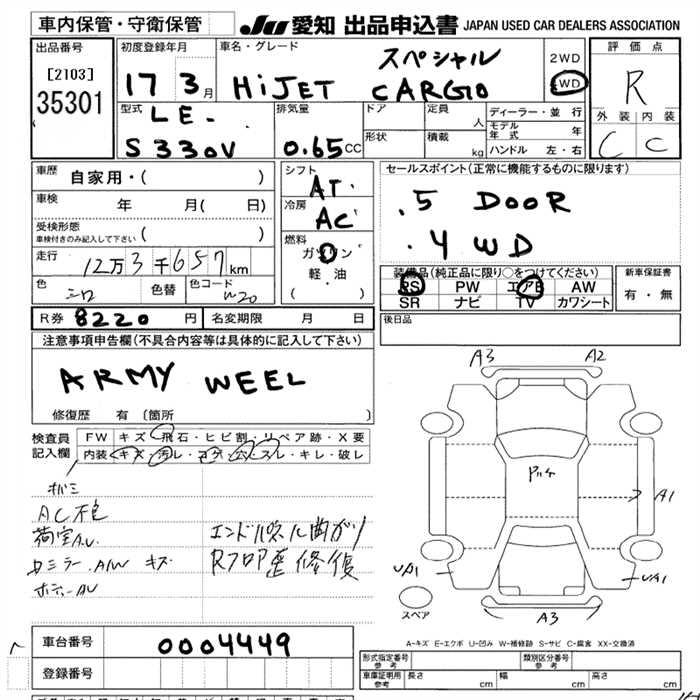 車内保管・守衛保管
JU 愛知 出品申込書 JAPAN USED CAR DEALERS ASSOCIATION
出品番号
[2103]
35301
初度登録年月
17 3月
車名・グレード
スペシャル
HiJET CARGO
2WD
4WD
評価点
R
外装 内装
C C
型式
LE-
S330V
排気量
0.65CC
ドア
形状
定員 人
積載 kg
ディーラー・並行
モデル年式 年
ハンドル 左・右
車歴 自家用・( )
車検 年 月( 日)
受検形態
車検付きのみ記入して下さい ( )
走行 12万3千657km
色 シロ 色替 色コード W20
シフト
AT.
冷房
AC
燃料
ガソリン
軽・油
( )
セールスポイント(正常に機能するものに限ります)
.5 DOOR
.4WD
装備品(純正品に限り○をつけてください)
PS PW エアB AW
SR ナビ TV カワシート
新車保証書
有・無
R券 8220円 名変期限 月 日
後日品
注意事項申告欄(不具合内容等は具体的に記入して下さい)
ARMY WEEL
修復歴 有〔箇所 〕
検査員記入欄
FW キズ・飛石・ヒビ割・リペア跡・X要
内装 キズ・汚レ・コゲ・穴・スレ・キレ・破レ
AC不良
荷室AU
ミラーA/W キズ
ボディーAU
曲がり
Rフロア歪 修復
A3 A2
A1
UA1 UA1
スペア
A3
A-キズ E-エクボ U-凹み W-補修跡 S-サビ C-腐食 XX-交換済
車台番号 0004449
登録番号
形式指定番号 参考
類別区分番号 参考
車庫証明用 参考 長さ cm 幅 cm 高さ cm